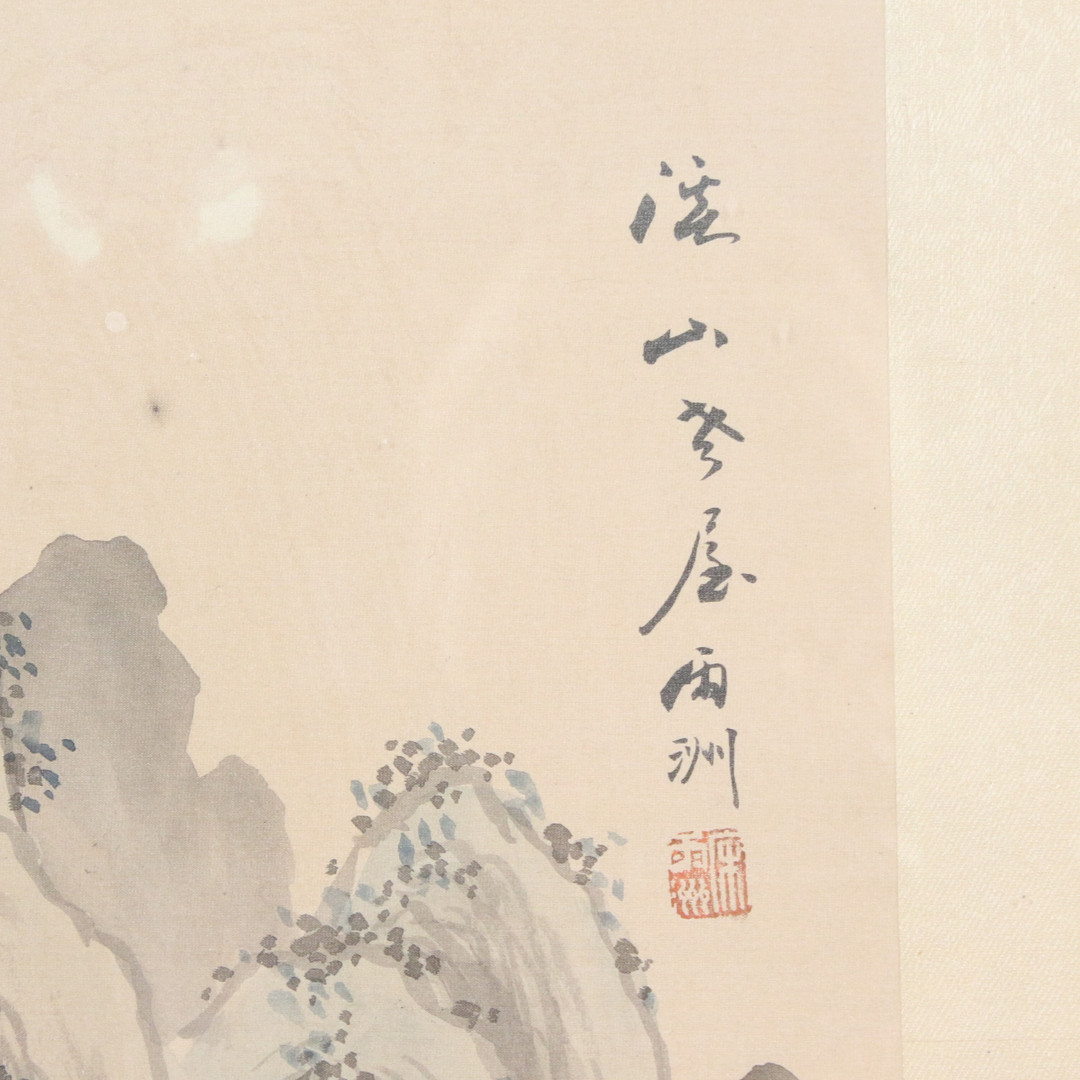 溪山老屋雨洲